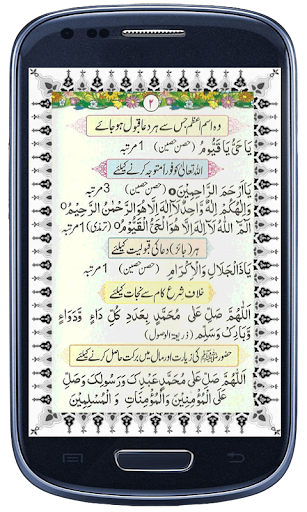 ۲
وہ اسم اعظم جس سے ہر دعا قبول ہو جائے
يَا حَيُّ يَا قَيُّوْمُ (حصن حصین) 1 مرتبہ
اللہ تعالیٰ کو فوراً متوجہ کرنے کیلئے
يَا اَرْحَمَ الرَّاحِمِيْنَ ٥ (حصن حصین) 3 مرتبہ
وَاِلٰهُكُمْ اِلٰهٌ وَّاحِدٌ لَآ اِلٰهَ اِلَّا هُوَ الرَّحْمٰنُ الرَّحِيْمُ ٥
الٓمّٓ اللّٰهُ لَآ اِلٰهَ اِلَّا هُوَ الْحَيُّ الْقَيُّوْمُ ٥ (ترمذی) 1 مرتبہ
ہر (جائز) دعا کی قبولیت کیلئے
يَا ذَا الْجَلَالِ وَالْاِكْرَامِ (حصن حصین) 1 مرتبہ
خلاف شرع کام سے نجات کیلئے
اَللّٰهُمَّ صَلِّ عَلٰى مُحَمَّدٍ بِعَدَدِ كُلِّ دَاءٍ وَّدَوَاءٍ
وَّبَارِكْ وَسَلِّمْ (ذریعۃ الوصول)
حضور ﷺ کی زیارت اور مال میں برکت حاصل کرنے کیلئے
اَللّٰهُمَّ صَلِّ عَلٰى مُحَمَّدٍ عَبْدِكَ وَرَسُوْلِكَ وَصَلِّ
عَلَى الْمُؤْمِنِيْنَ وَالْمُؤْمِنَاتِ وَ الْمُسْلِمِيْنَ